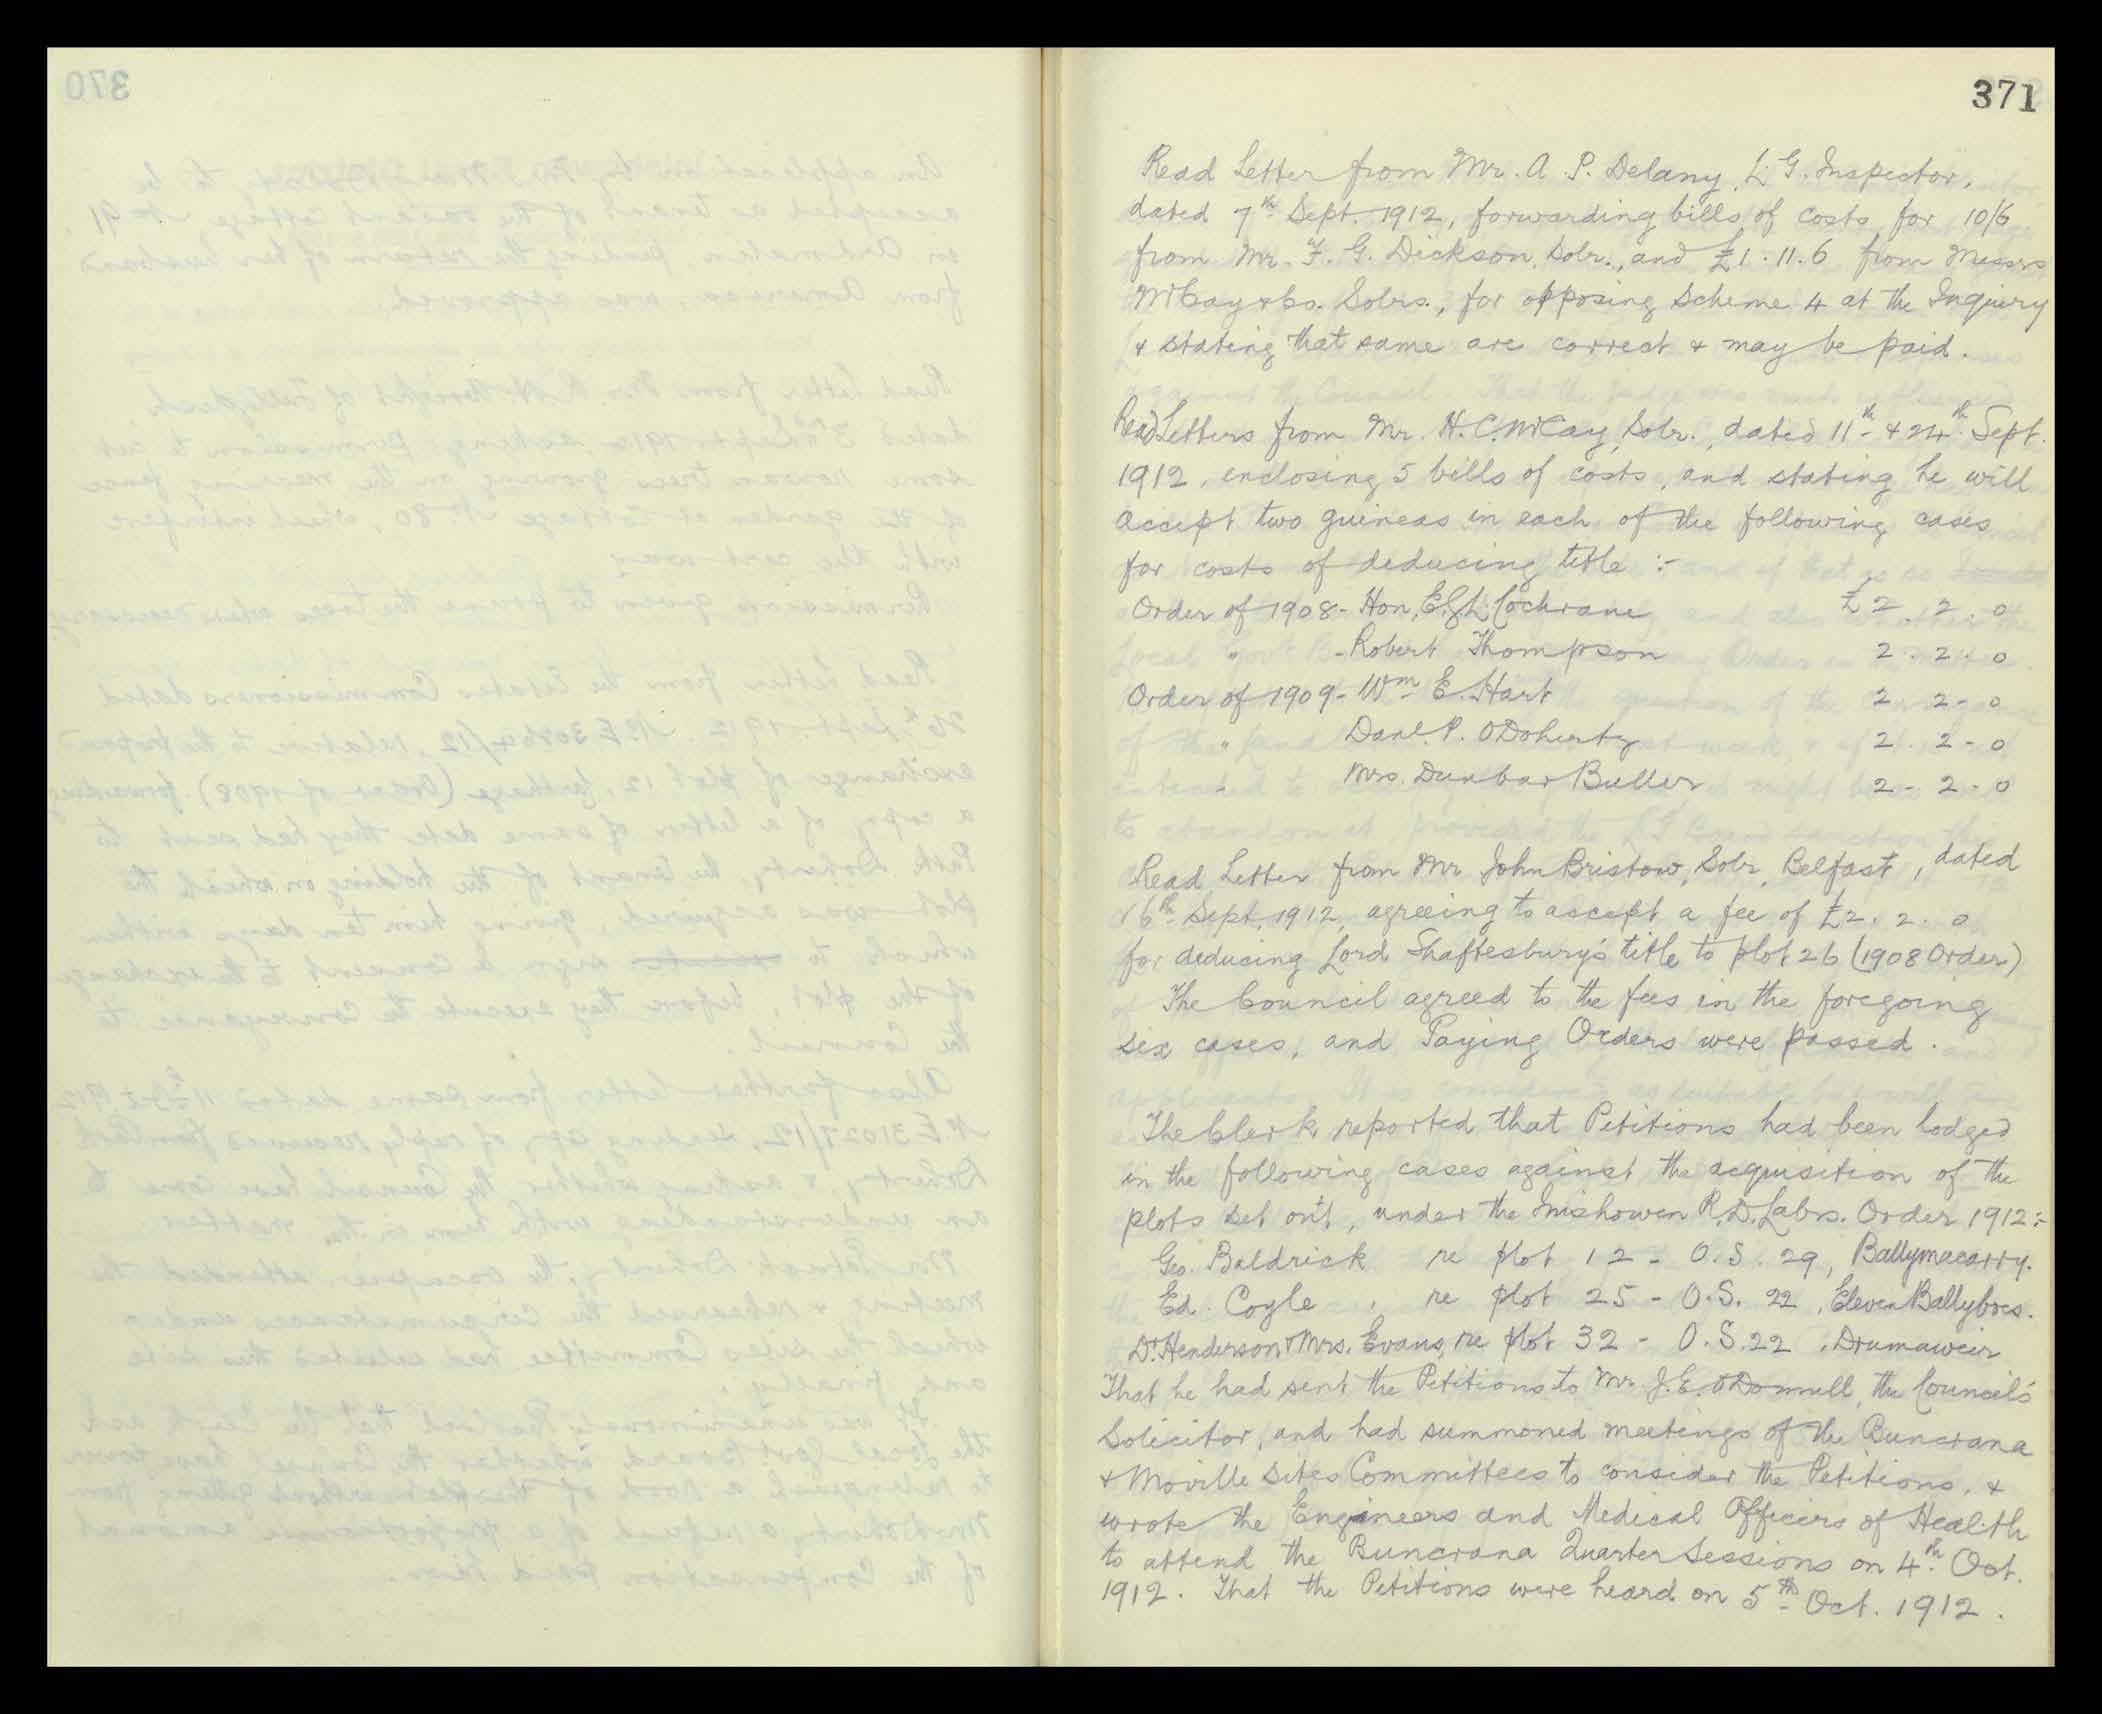 371
Read Letter from Mr. A. P. Delany, L. G. Inspector,
dated 7th Sept. 1912, forwarding bills of costs for 10/6
from Mr. F. G. Dickson, Solr., and £1.11.6 from Messrs
McCay & Co. Solrs., for opposing Scheme 4 at the Inquiry
& stating that same are correct & may be paid.
Read Letters from Mr. H. C. McCay, Solr., dated 11th & 24th Sept.
1912, enclosing 5 bills of costs, and stating he will
accept two guineas in each of the following cases
for costs of deducing title :-
Order of 1908 - Hon. E. G. L. Cochrane £2 . 2 . 0
" - Robert Thompson 2 . 2 . 0
Order of 1909 - Wm E. Hart 2 . 2 - 0
" Danl. P. O'Doherty 2 . 2 - 0
" Mrs. Dunbar Buller 2 - 2 - 0
Read Letter from Mr John Bristow, Solr, Belfast, dated
16th Sept. 1912, agreeing to accept a fee of £2 . 2 . 0
for deducing Lord Shaftesbury's title to plot 26 (1908 Order)
The Council agreed to the fees in the foregoing
six cases, and Paying Orders were passed.
The Clerk reported that Petitions had been lodged
in the following cases against the acquisition of the
plots set out, under the Inishowen R.D. Labrs. Order 1912 :-
Geo. Baldrick re plot 12 - O.S. 29, Ballymacarry.
Ed. Coyle , re plot 25 - O.S. 22, Eleven Ballyboes.
Dr. Henderson & Mrs. Evans, re plot 32 - O.S. 22, Drumaweir
That he had sent the Petitions to Mr J. E. O'Donnell, the Council's
Solicitor, and had summoned meetings of the Buncrana
& Moville Sites Committees to consider the Petitions, &
wrote the Engineers and Medical Officers of Health
to attend the Buncrana Quarter Sessions on 4th Oct.
1912. That the Petitions were heard on 5th Oct. 1912.